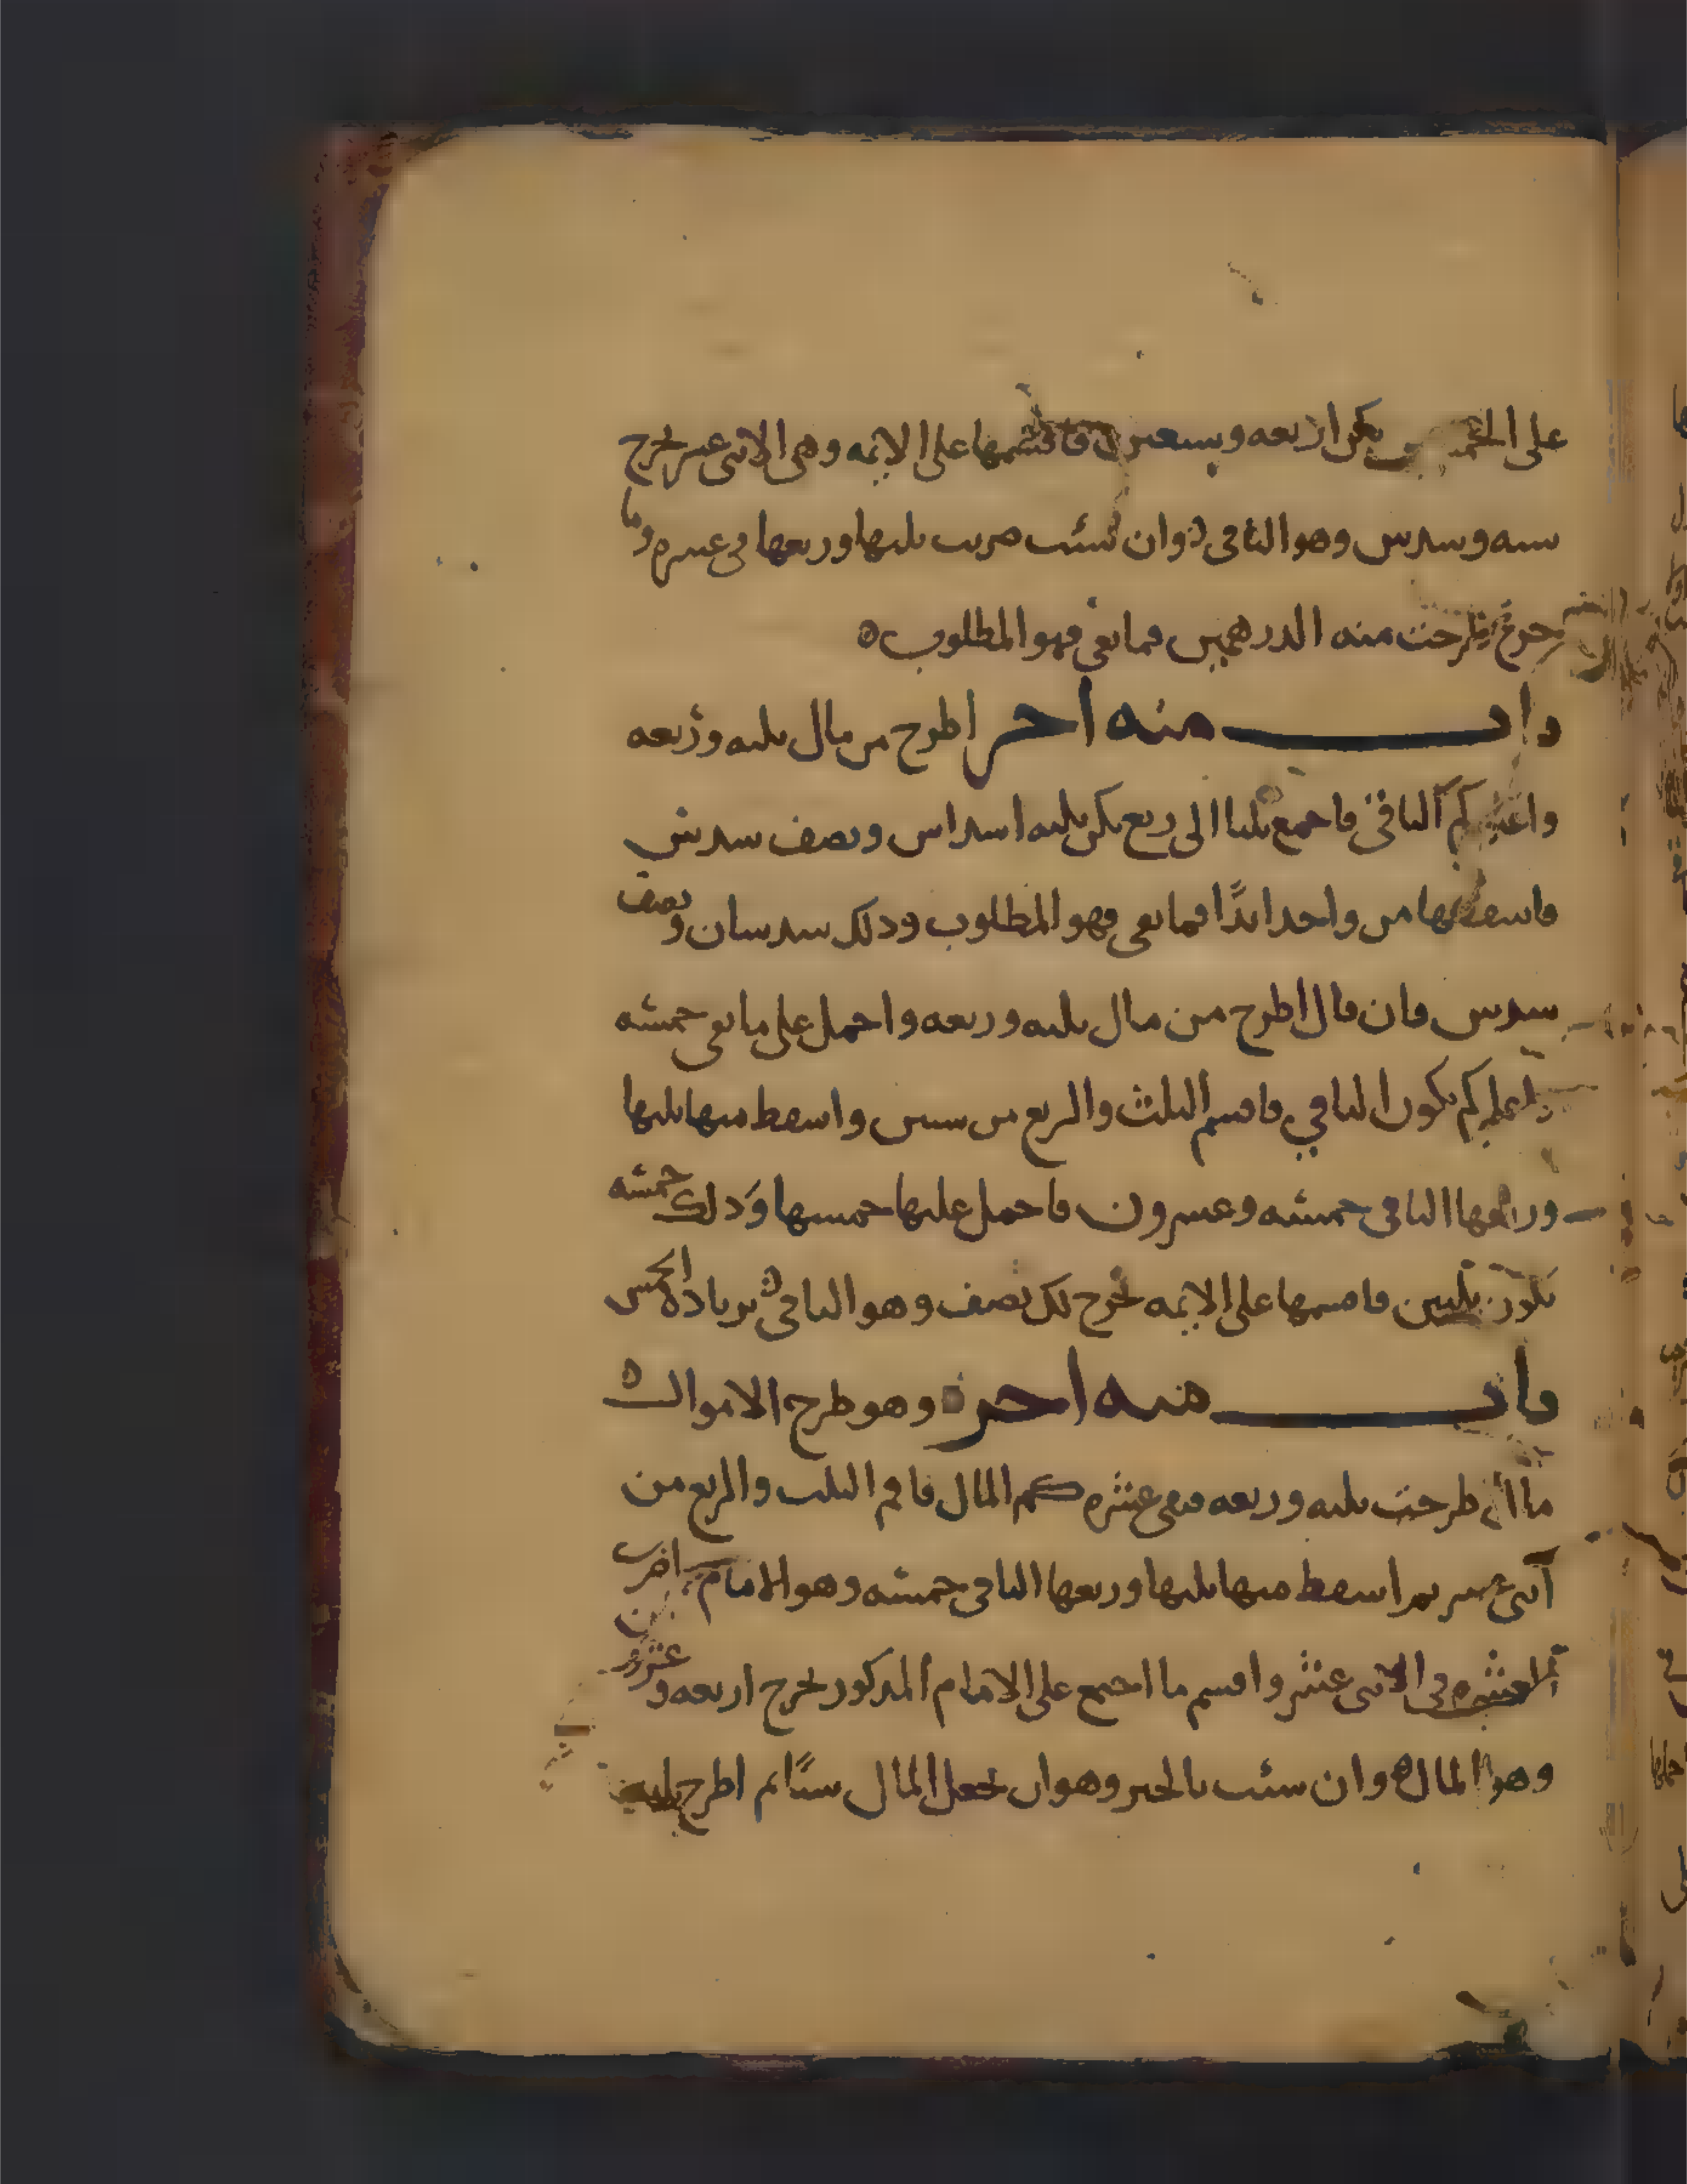 على يكن اربعه وسبعين فاقسمها على الائمه وهي الاثنى عشر يخرج
سته وسدس وهو الباقي وان شئت ضربت ثلثها وربعها في عشره وما
خرج طرحت منه الدرهمين فما بقي فهو المطلوب
باب منه اخر اطرح من مال ثلثه وربعه
كم الباقي فاجمع ثلثا الى ربع يكن ثلثه اسداس ونصف سدس
فاسقطها من واحد ابدًا فما بقي فهو المطلوب وذلك سدسان ونصف
سدس فان قال اطرح من مال ثلثه وربعه واحمل على ما بقي خمسه
كم يكون الباقي فاقسم الثلث والربع من ستين واسقط منها ثلثها
وربعها الباقي خمسه وعشرون فاحمل عليها خمسها وذلك خمسه
تكون ثلثين فاقسمها على الائمه يخرج لك نصف وهو الباقي بزياده الخمس
باب منه اخر وهو طرح الاموال
ما ان طرحت ثلثه وربعه فبقي عشره كم المال فاقم الثلث والربع من
اثنى عشر ثم اسقط منها ثلثها وربعها الباقي خمسه وهو الامام اضرب
العشره في الاثنى عشر واقسم ما اجتمع على الامام المذكور يخرج اربعه وعشرون
وهو المال وان شئت بالجبر وهو ان تجعل المال شيًا ثم اطرح ثلثه